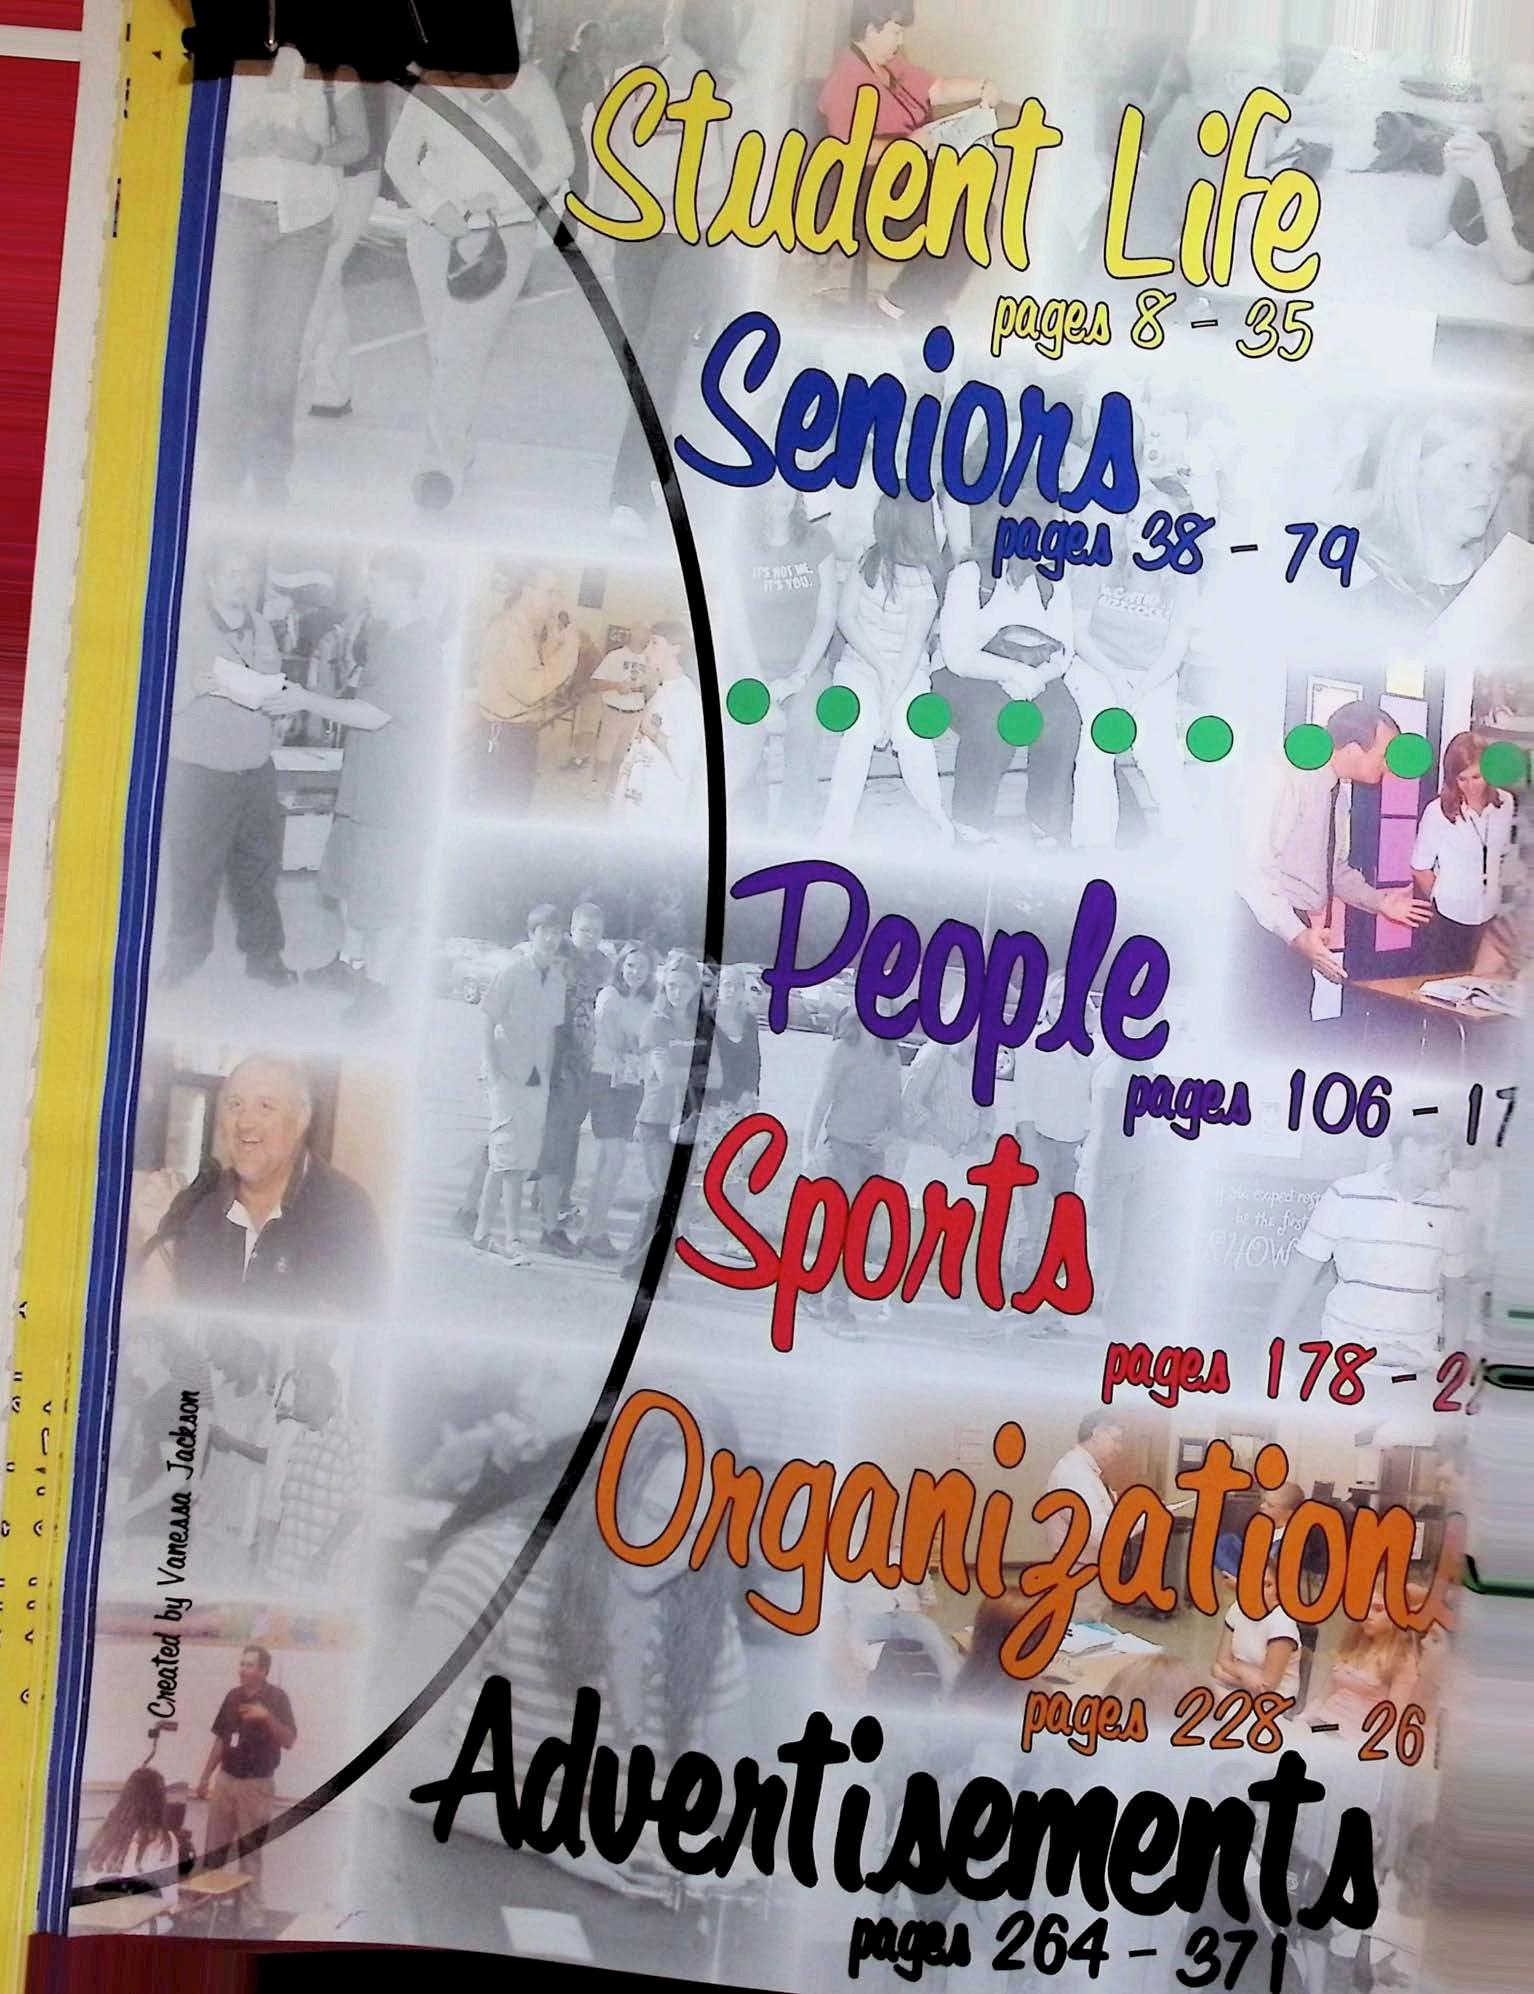 Student Life
pages 8 - 35
Seniors
pages 38 - 79
IT'S NOT ME,
IT'S YOU.
People
pages 106 - 17
Sports
pages 178 - 2
be the first
SHOW
Organizations
pages 228 - 26
Advertisements
pages 264 - 371
Created by Vanessa Jackson